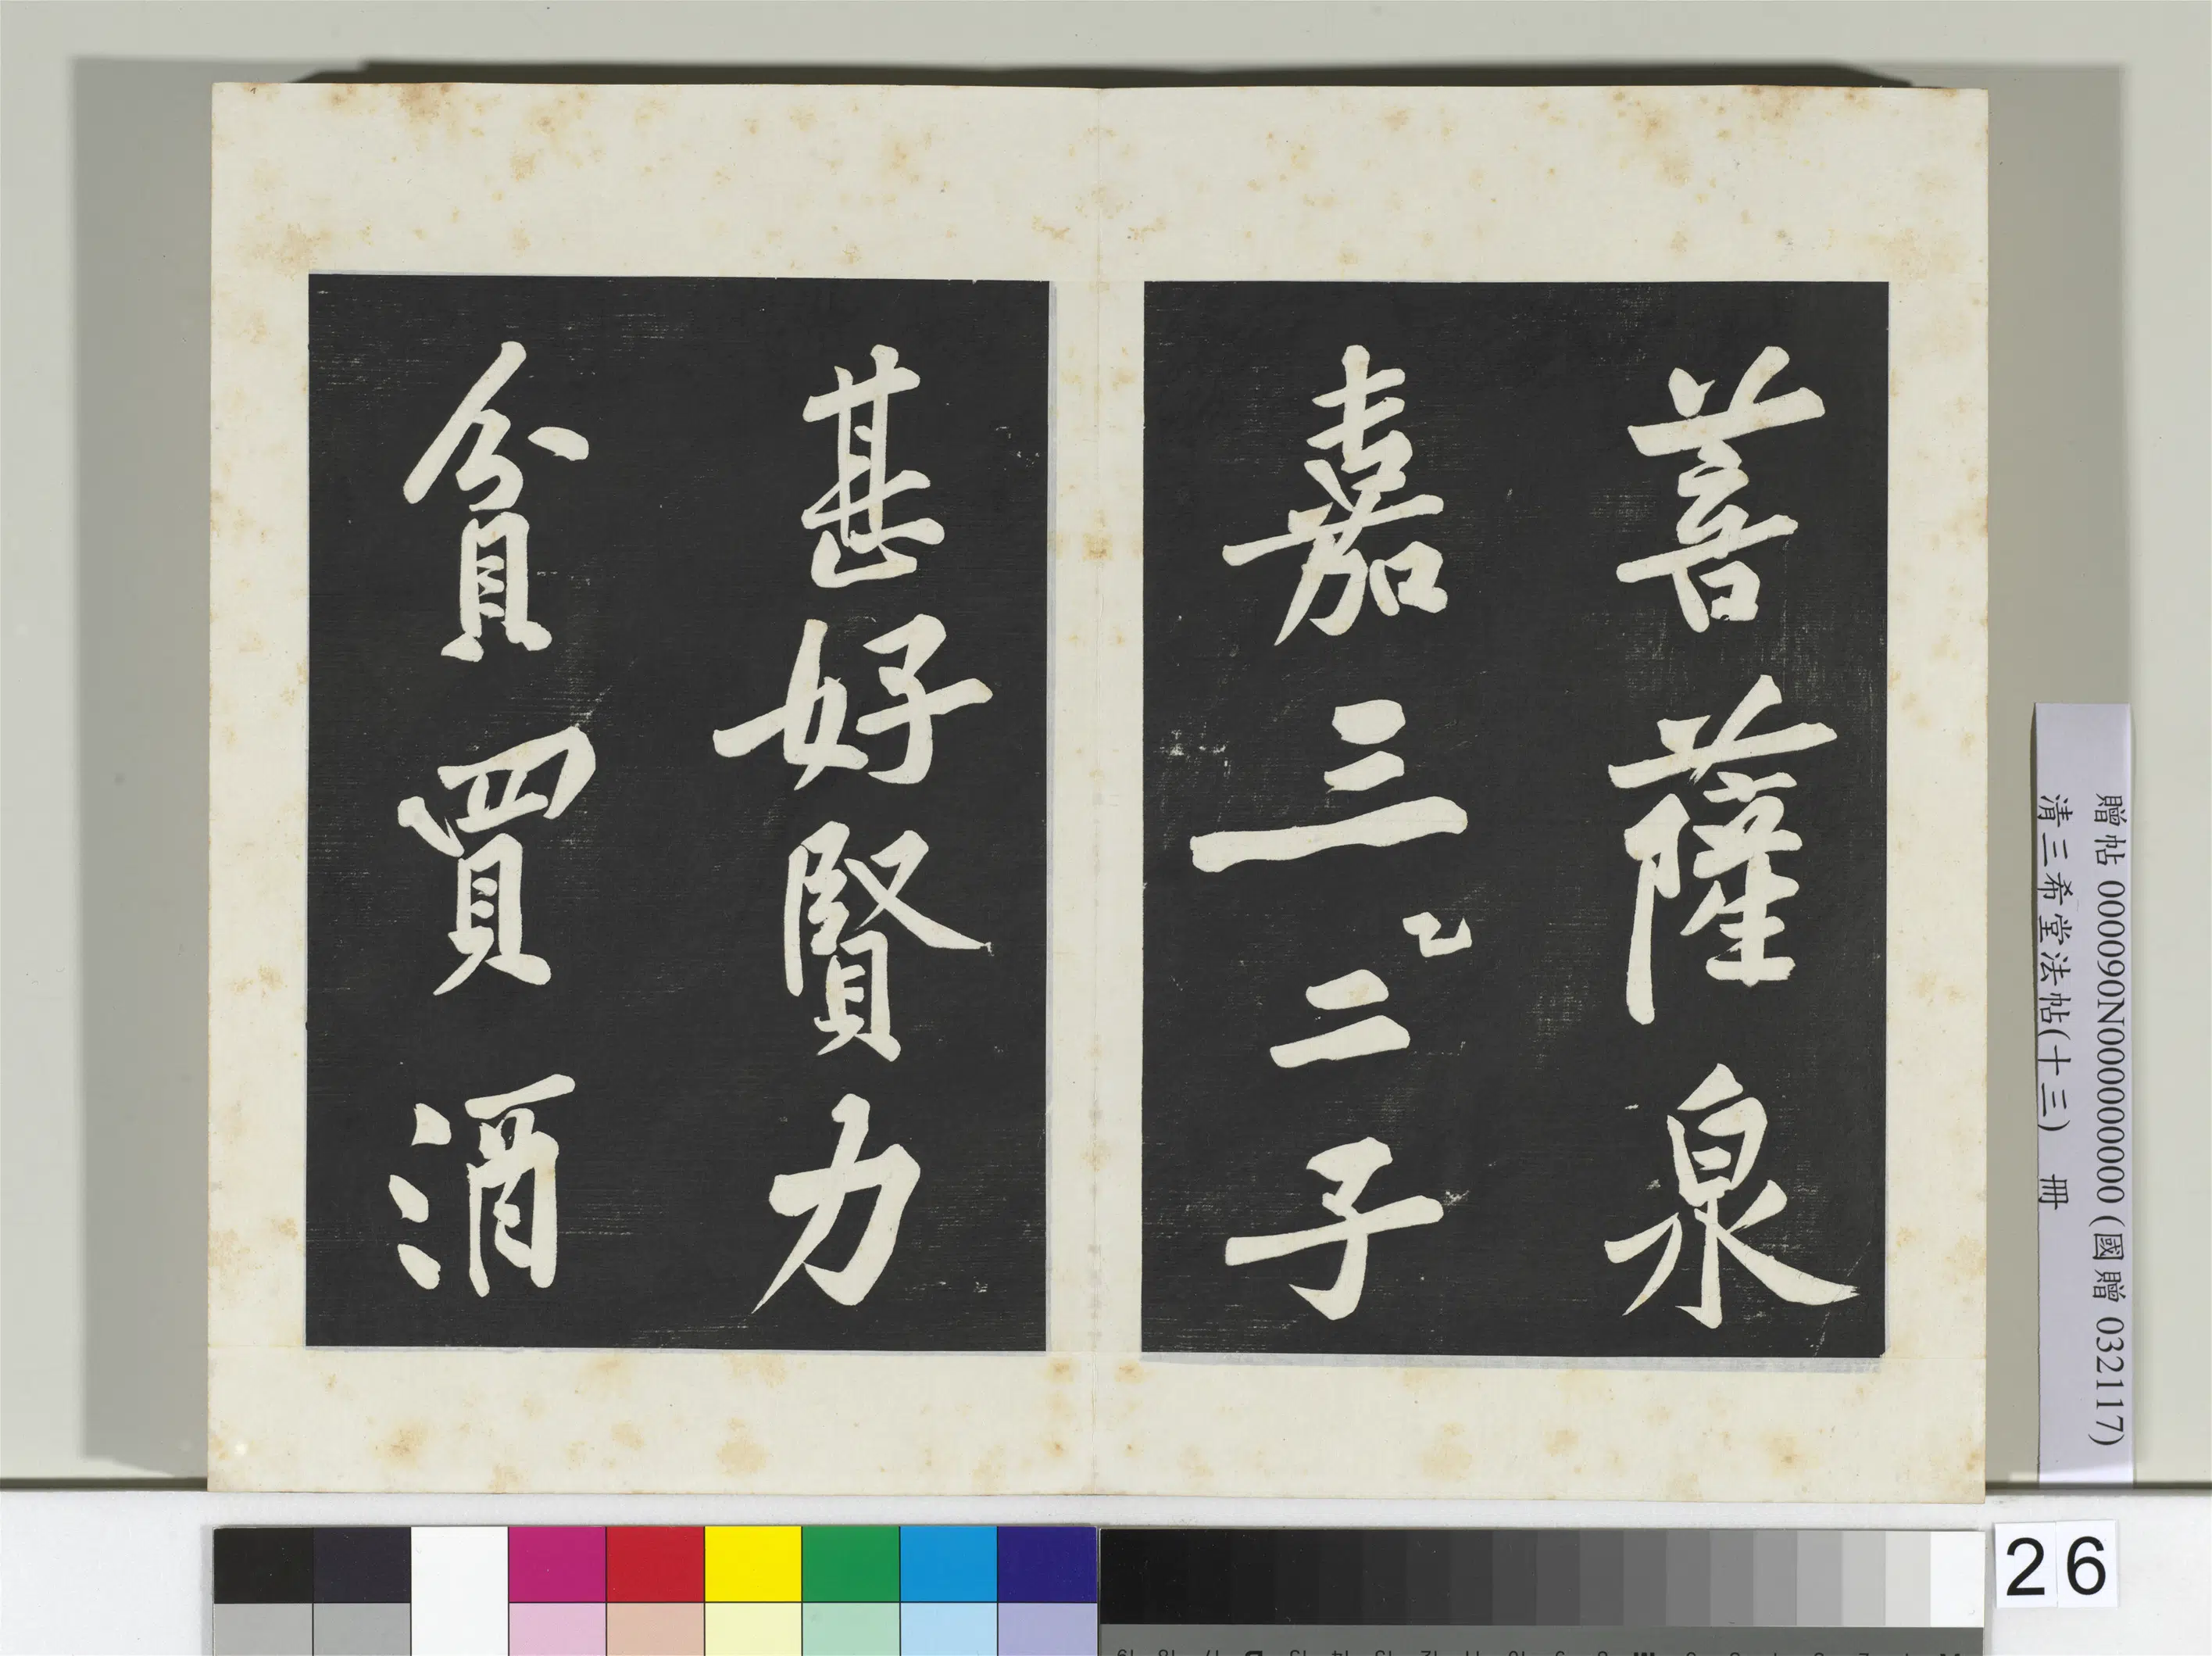 菩薩泉
嘉三〻二子
甚好賢力
貧買酒
贈帖 000090N000000000 (國贈 032117)
清三希堂法帖(十三) 冊
26